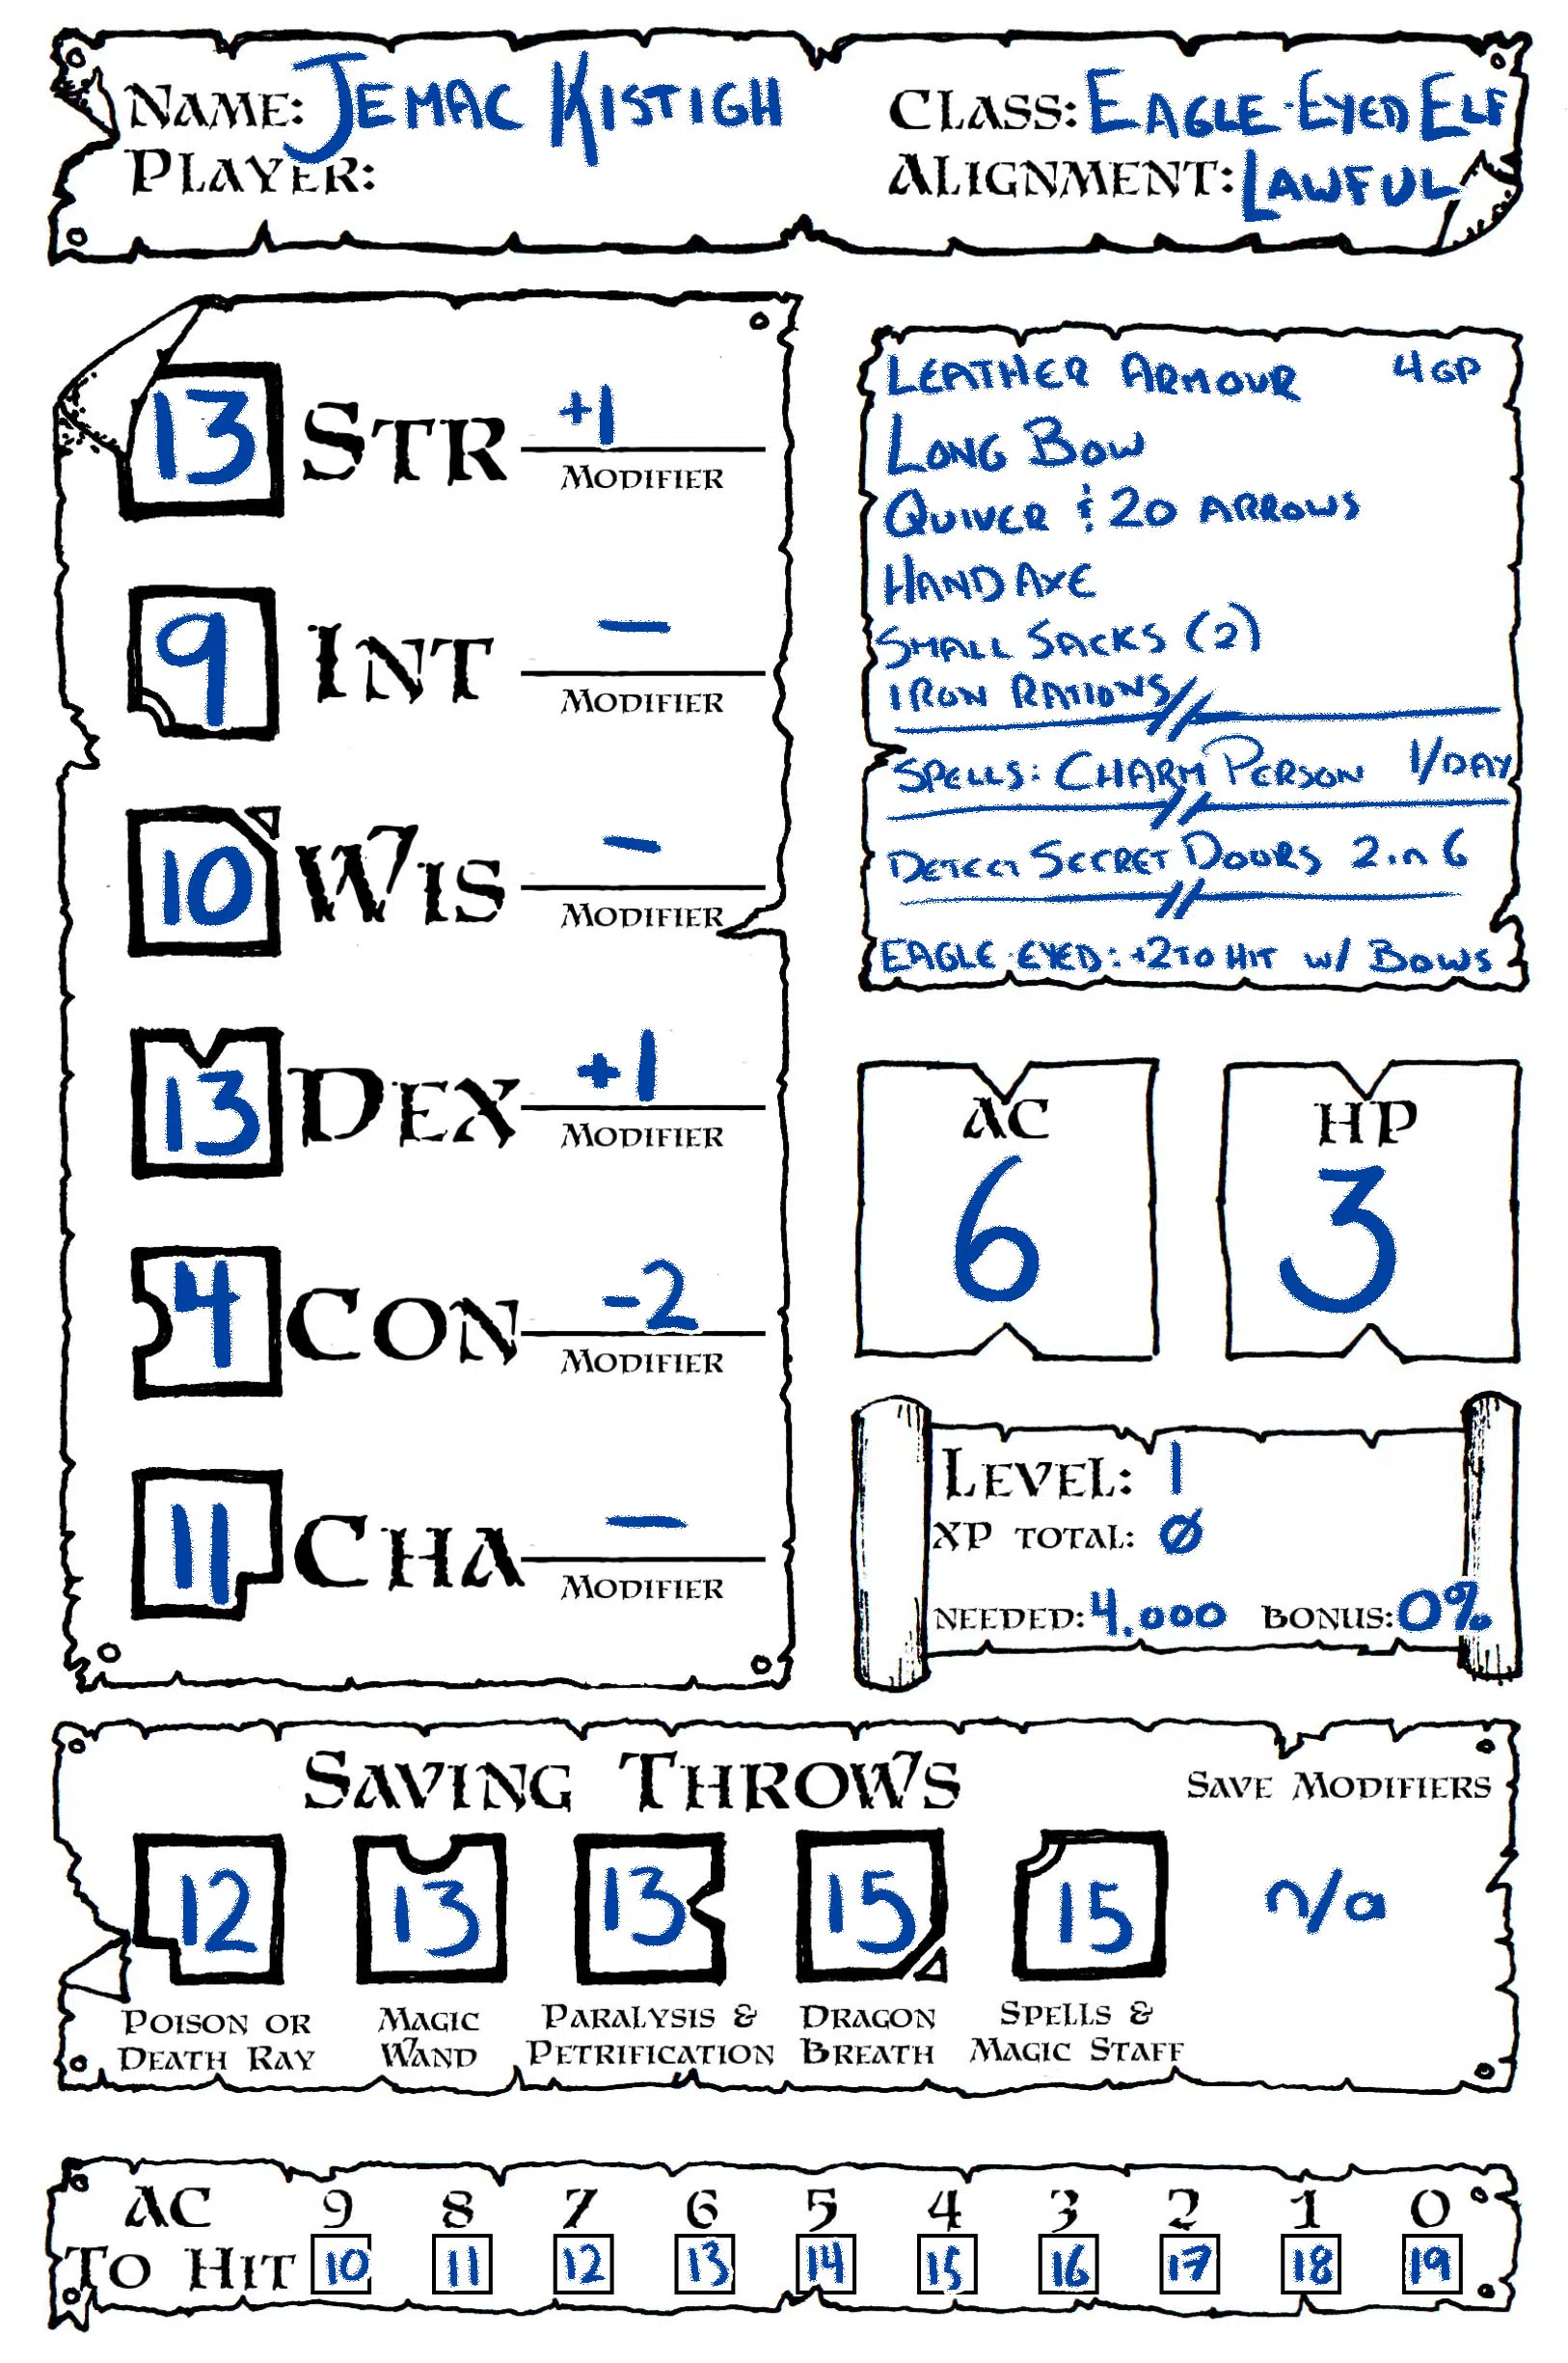 Name: Jemac Kistigh
Player:
Class: Eagle-Eyed Elf
Alignment: Lawful
13 Str +1
Modifier
9 Int –
Modifier
10 Wis –
Modifier
13 Dex +1
Modifier
4 Con -2
Modifier
11 Cha –
Modifier
Leather Armour 4 GP
Long Bow
Quiver & 20 Arrows
Hand Axe
Small Sacks (2)
Iron Rations
Spells: Charm Person 1/Day
Detect Secret Doors 2 in 6
Eagle-Eyed: +2 to hit w/ Bows
AC
6
HP
3
Level: 1
XP total: Ø
needed: 4,000 bonus: 0%
Saving Throws
Save Modifiers
12 13 13 15 15 n/a
Poison or Death Ray
Magic Wand
Paralysis & Petrification
Dragon Breath
Spells & Magic Staff
AC 9 8 7 6 5 4 3 2 1 0
To Hit 10 11 12 13 14 15 16 17 18 19